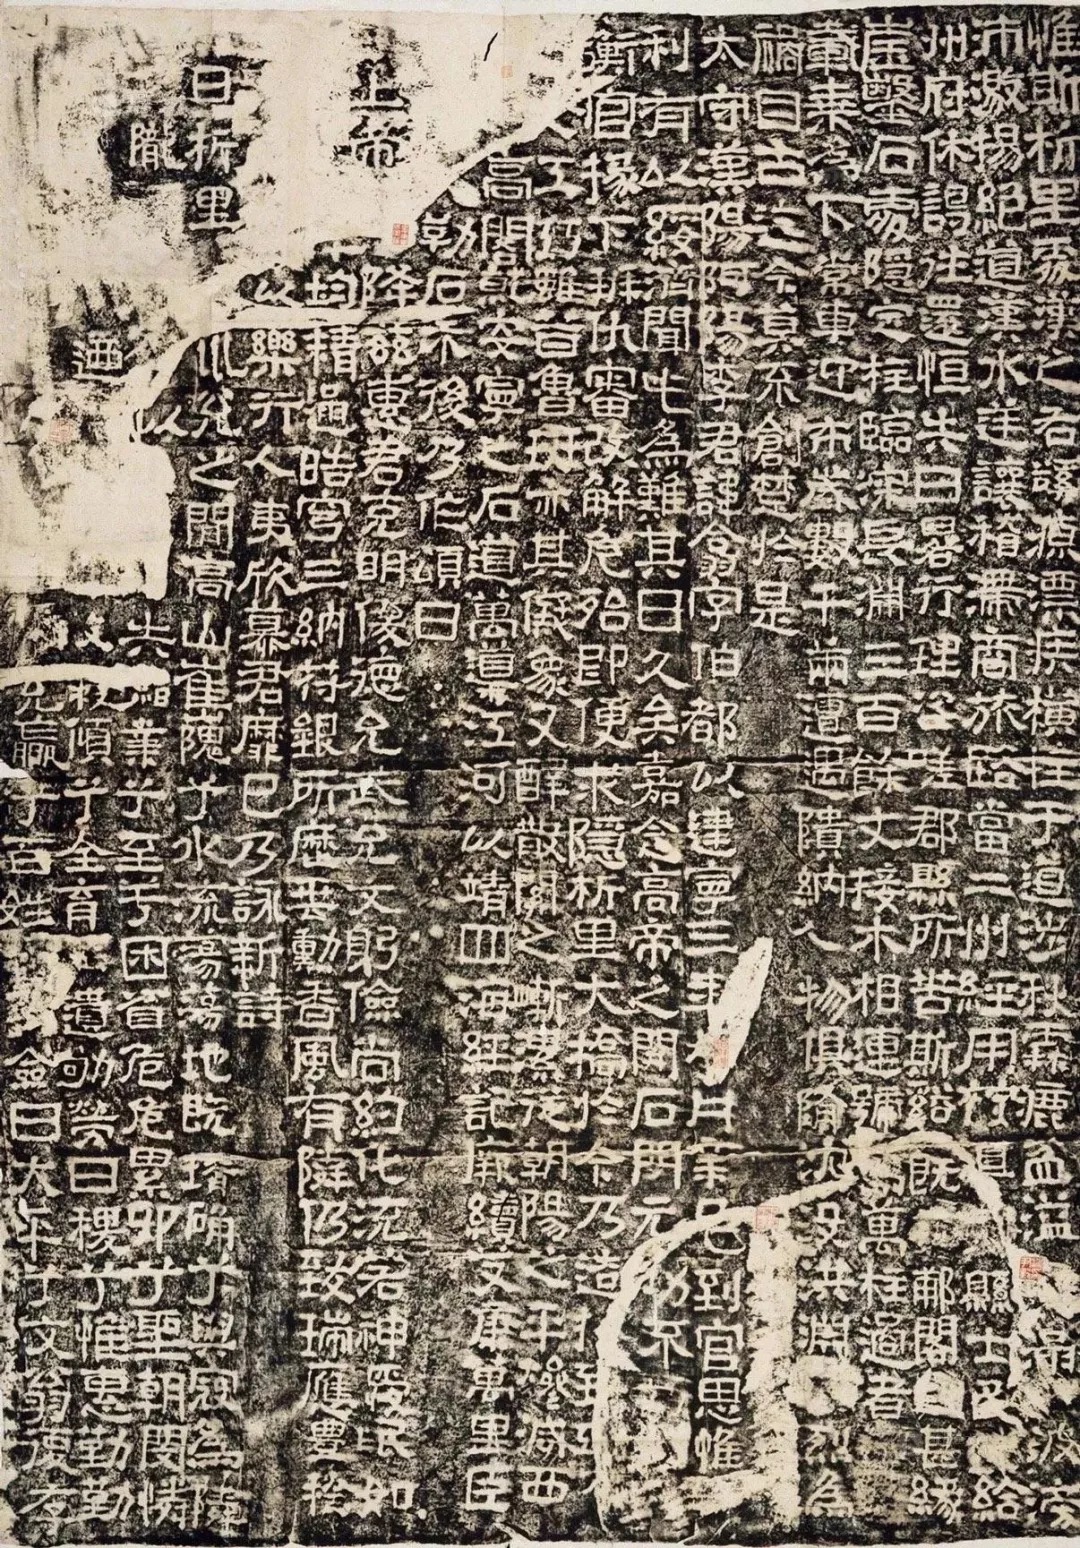 惟斯析里處漢之右溪源漂疾橫柱于道涉秋霖漉盆溢濤波滂
沛激揚絕道漢水逆讓稽滯商旅路當二州經用狩沮縣士給
州府休謁往還恒失日晷行理咨嗟郡縣所苦斯谿既郙閣甚緣
崖鑿石處隱定柱臨深長淵三百餘丈接木相連號萬柱過者
載乘為下常車迎布歲數千兩遭遇隤納人物俱隋沈沒洪淵烈為
禍自古迄今莫不創楚於是
太守漢陽阿陽李君諱翕字伯都以建寧三年月辛巳到官思惟
利有以綏濟聞此為難其日久矣嘉念高帝之開石門元功不
衡官掾下辨仇審改解危殆即便求隱析里大橋於今乃造
工巧雖昔魯班亦其儗象又醳散關之嶃漯從朝陽之平燥減西
高閣就安寧之石道禹導江河以靖四海經記厥續艾康萬里臣
勒石示後乃作頌曰
上帝降茲惠君克明俊德允武允文躬儉尚約化流若神愛氓如
均精通皓穹三納苻銀所歷垂勳香風有隣仍致瑞應豐稔
以樂行人夷欣慕君靡已乃詠新詩
曰析里川兌之間高山崔隗兮水流蕩蕩地既塉确兮與寇為隣
以失緒業兮至于困省危危累卵兮聖朝閔憐
迺救傾兮全育遺劬勞日稷兮惟惠勤勤
充贏兮百姓僉曰太平兮文翁復存